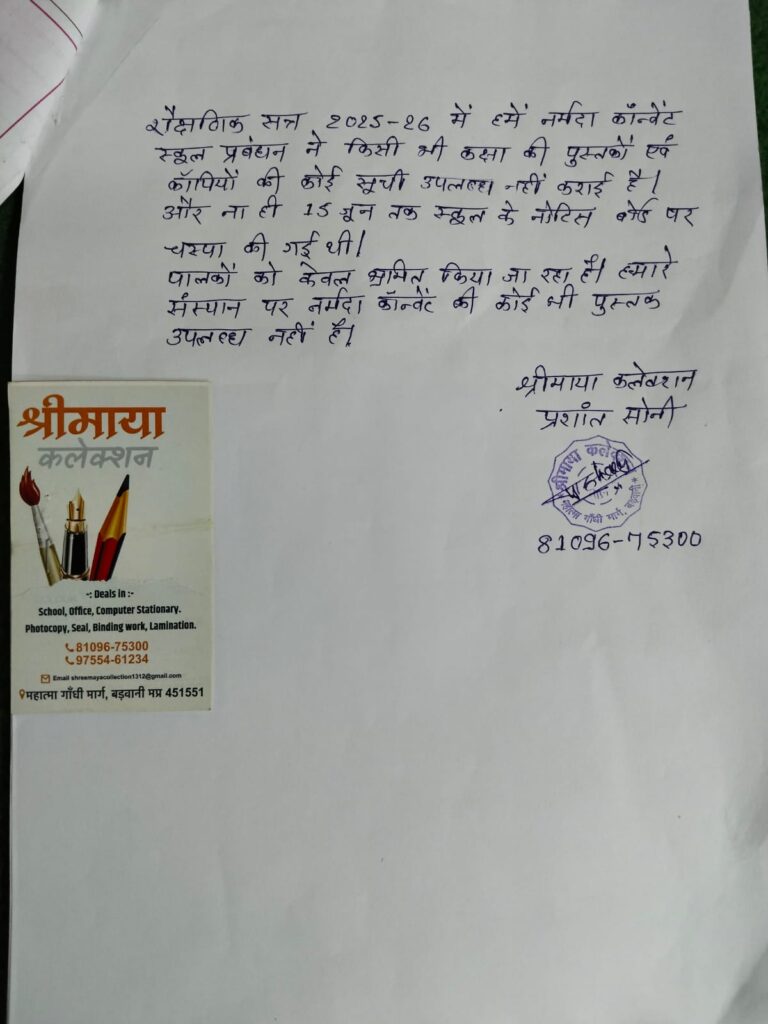 शैक्षणिक सत्र 2025-26 में हमें नर्मदा कॉन्वेंट
स्कूल प्रबंधन ने किसी भी कक्षा की पुस्तकों एवं
कॉपियों की कोई सूची उपलब्ध नहीं कराई है।
और ना ही 15 जून तक स्कूल के नोटिस बोर्ड पर
चस्पा की गई थी।
पालकों को केवल भ्रमित किया जा रहा है। हमारे
संस्थान पर नर्मदा कॉन्वेंट की कोई भी पुस्तक
उपलब्ध नहीं है।
श्रीमाया कलेक्शन
प्रशांत सोनी
श्रीमाया कलेक्शन
महात्मा गाँधी मार्ग, बड़वानी
81096-75300
श्रीमाया
कलेक्शन
-: Deals in :-
School, Office, Computer Stationary.
Photocopy, Seal, Binding work, Lamination.
81096-75300
97554-61234
Email shreemayacollection1312@gmail.com
महात्मा गाँधी मार्ग, बड़वानी मप्र 451551